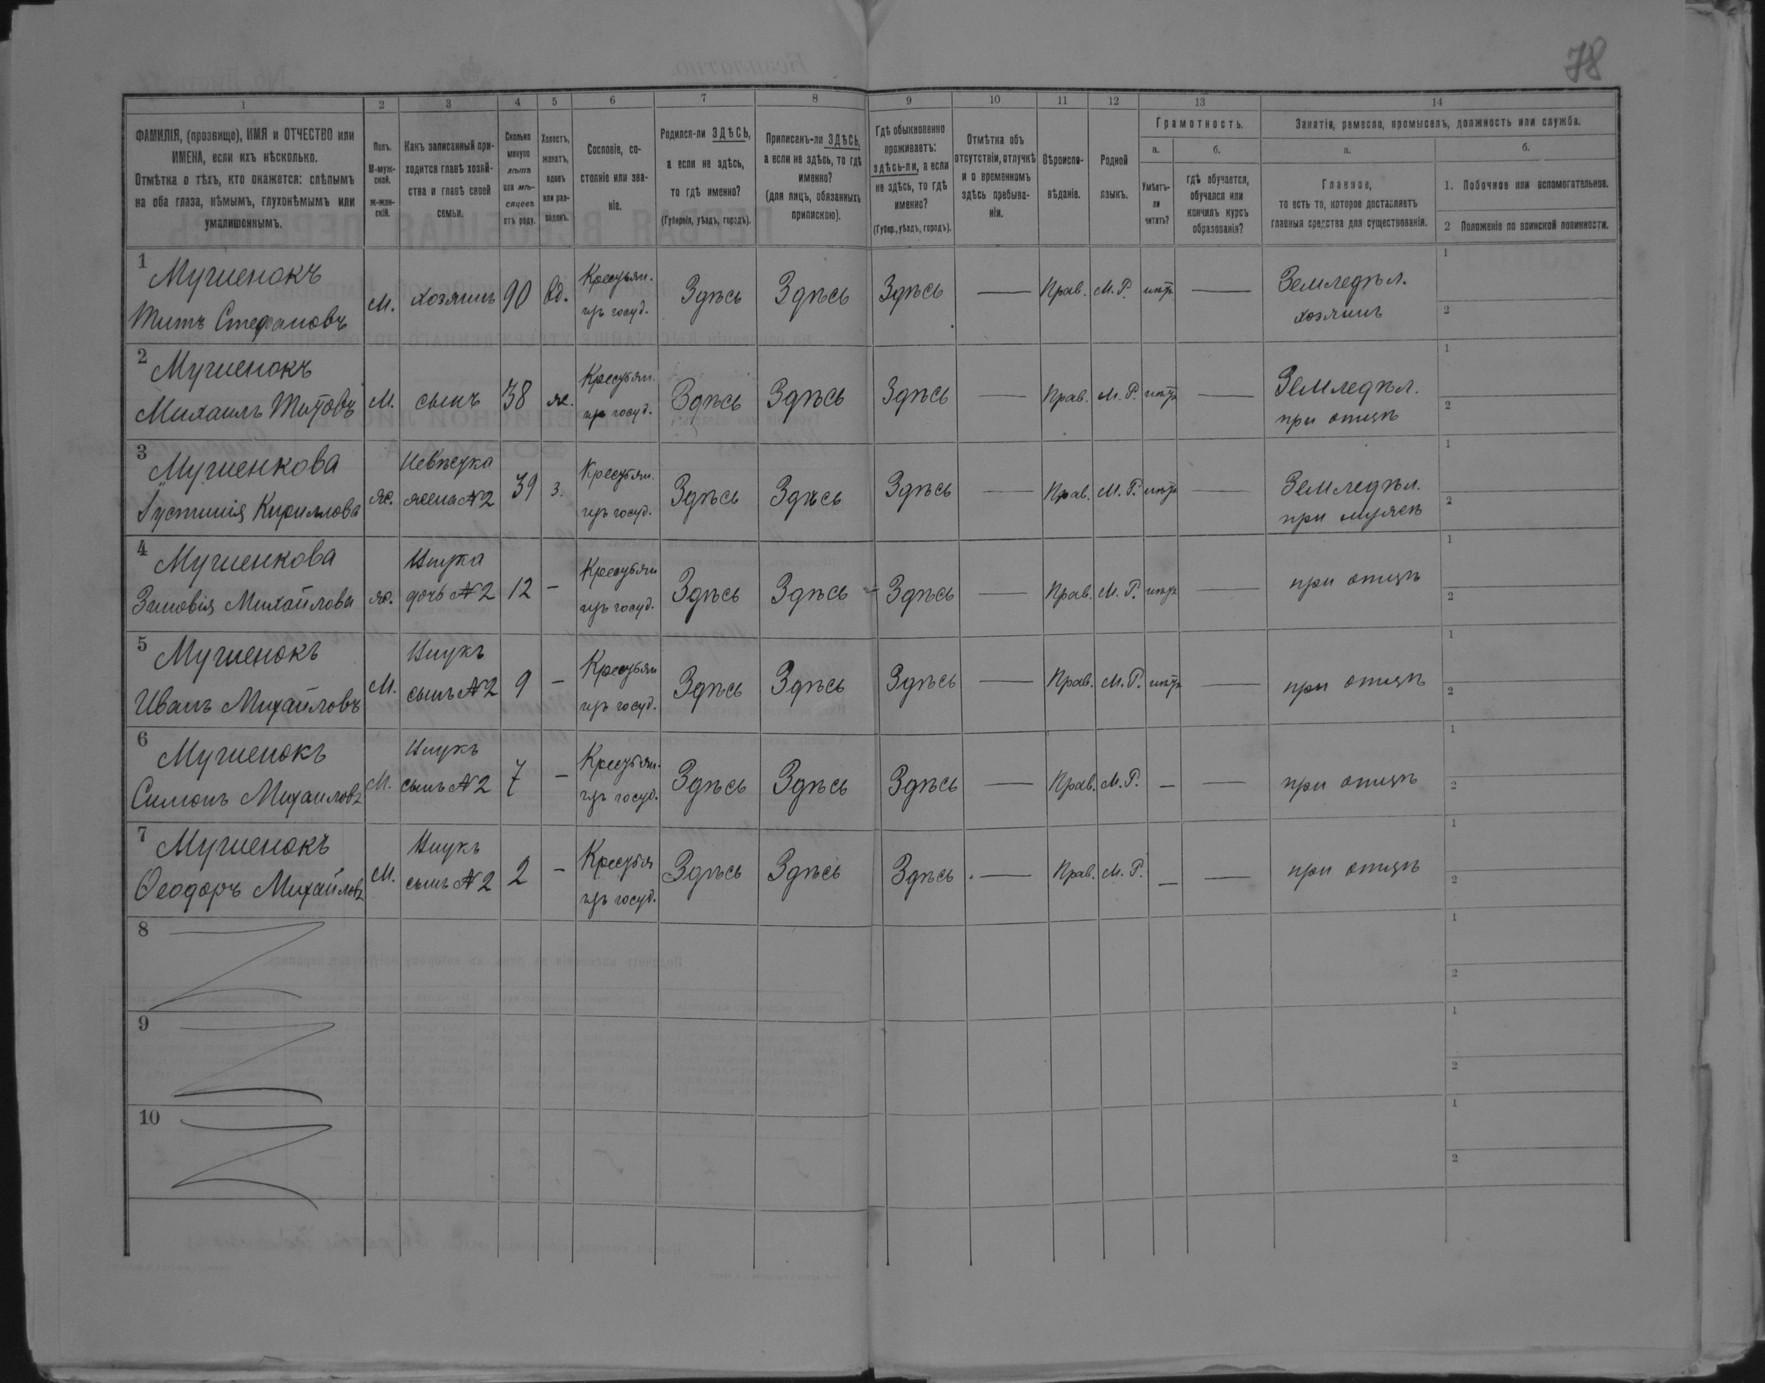 78
1 2 3 4 5 6 7 8 9 10 11 12 13 14
ФАМИЛІЯ, (прозвище), ИМЯ и ОТЧЕСТВО или
ИМЕНА, если ихъ нѣсколько.
Отмѣтка о тѣхъ, кто окажется: слѣпымъ
на оба глаза, нѣмымъ, глухонѣмымъ или
умалишеннымъ.
Полъ.
М-муж-
ской.
ж-жен-
скій.
Какъ записанный при-
ходится главѣ хозяй-
ства и главѣ своей
семьи.
Сколько
минуло
лѣтъ
или мѣ-
сяцевъ
отъ роду.
Холостъ,
женатъ,
вдовъ
или раз-
веденъ.
Сословіе, со-
стояніе или зва-
ніе.
Родился-ли ЗДѢСЬ,
а если не здѣсь,
то гдѣ именно?
(Губернія, уѣздъ, городъ).
Приписанъ-ли ЗДѢСЬ,
а если не здѣсь, то гдѣ
именно?
(для лицъ, обязанныхъ
припискою).
Гдѣ обыкновенно
проживаетъ:
здѣсь-ли, а если
не здѣсь, то гдѣ
именно?
(Губер., уѣздъ, городъ).
Отмѣтка объ
отсутствіи, отлучкѣ
и о временномъ
здѣсь пребыва-
ніи.
Вѣроиспо-
вѣданіе.
Родной
языкъ.
Грамотность.
а.
Умѣетъ-
ли
читать?
б.
гдѣ обучается,
обучался или
кончилъ курсъ
образованія?
Занятіе, ремесло, промыселъ, должность или служба.
а.
Главное,
то есть то, которое доставляетъ
главныя средства для существованія.
б.
1. Побочное или вспомогательное.
2 Положеніе по воинской повинности.
1 Мугиенокъ
Титъ Стефановъ
М. хозяинъ 90 вд. Крестьян. изъ госуд. Здѣсь Здѣсь Здѣсь — Прав. М.Р. нѣтъ — Земледѣл. хозяинъ
1
2
2 Мугиенокъ
Михаилъ Титовъ
М. сынъ 38 ж. Крестьян. изъ госуд. Здѣсь Здѣсь Здѣсь — Прав. М.Р. нѣтъ — Земледѣл. при отцѣ
1
2
3 Мугиенкова
Іустинія Кириллова
ж. Невѣстка жена №2 39 з. Крестьян. изъ госуд. Здѣсь Здѣсь Здѣсь — Прав. М.Р. нѣтъ — Земледѣл. при мужѣ
1
2
4 Мугиенкова
Зиновія Михайлова
ж. Внука дочь №2 12 — Крестьян изъ госуд. Здѣсь Здѣсь Здѣсь — Прав. М.Р. нѣтъ — при отцѣ
1
2
5 Мугиенокъ
Иванъ Михайловъ
М. Внукъ сынъ №2 9 — Крестьян изъ госуд. Здѣсь Здѣсь Здѣсь — Прав. М.Р. нѣтъ — при отцѣ
1
2
6 Мугиенокъ
Симонъ Михаиловъ
М. Внукъ сынъ №2 7 — Крестьян. изъ госуд. Здѣсь Здѣсь Здѣсь — Прав. М.Р. — — при отцѣ
1
2
7 Мугиенокъ
Ѳеодоръ Михайловъ
М. Внукъ сынъ №2 2 — Крестьян изъ госуд. Здѣсь Здѣсь Здѣсь — Прав. М.Р. — — при отцѣ
1
2
8
1
2
9
1
2
10
1
2